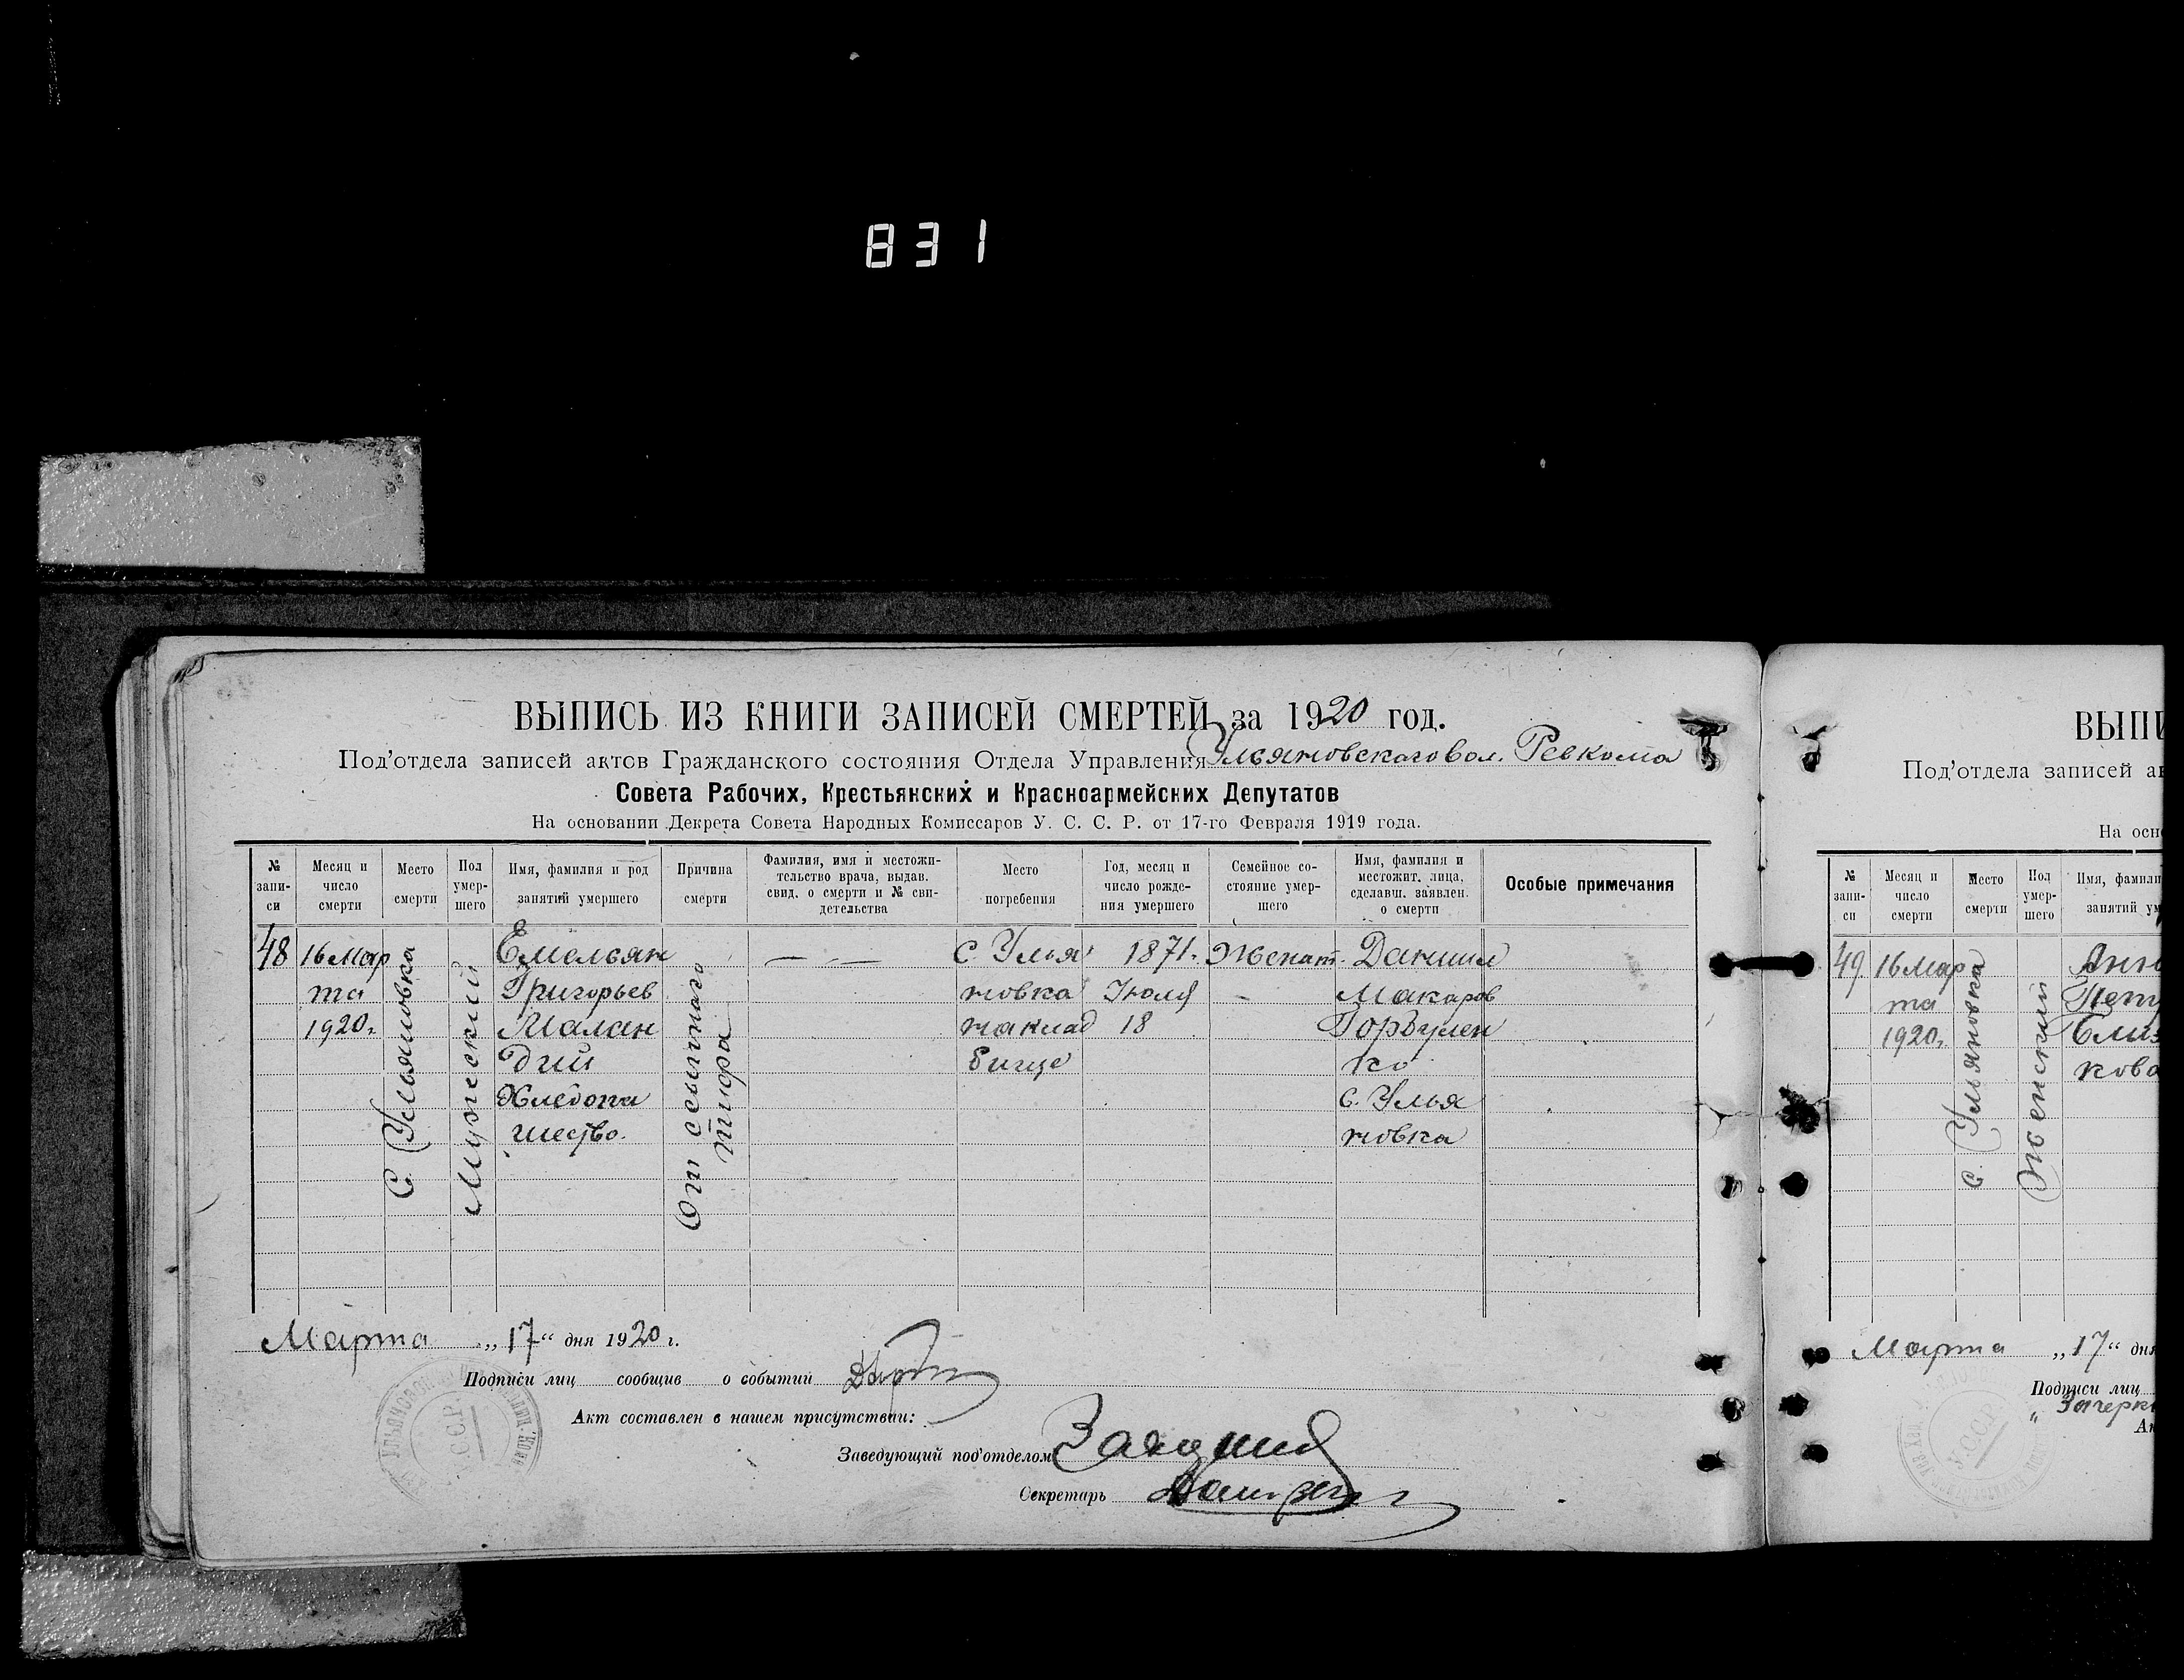 831
ВЫПИСЬ ИЗ КНИГИ ЗАПИСЕЙ СМЕРТЕЙ за 1920 год.
Под'отдела записей актов Гражданского состояния Отдела Управления Ульяновскаго вол. Ревкома
Совета Рабочих, Крестьянских и Красноармейских Депутатов
На основании Декрета Совета Народных Комиссаров У. С. С. Р. от 17-го Февраля 1919 года.
№ запи- си
Месяц и число смерти
Место смерти
Пол умер- шего
Имя, фамилия и род занятий умершего
Причина смерти
Фамилия, имя и местожи- тельство врача, выдав. свид. о смерти и № сви- детельства
Место погребения
Год, месяц и число рожде- ния умершего
Семейное со- стояние умер- шего
Имя, фамилия и местожит. лица, сделавш. заявлен. о смерти
Особые примечания
48
16 Мар
та
1920 г.
С. Ульяновка
Мужеский
Емельян
Григорьев
Малан
дий
Хлебопа
шество.
От сыпного
тифа
— —
С. Улья
новка
на клад
бище
1871 г.
Июля
18
Женат.
Даниил
Макаров
Горбулен
ко
С. Улья
новка
Марта „17“ дня 1920 г.
Подписи лиц сообщив о событии
Акт составлен в нашем присутствии:
Заведующий под'отделом
Секретарь
ВЫПИ
Под'отдела записей ак
На осн
№ запи- си
Месяц и число смерти
Место смерти
Пол умер- шего
Имя, фамили
занятий ум
49
16 Мар
та
1920 г.
С. Ульяновка
Женский
Анн
Петр
Близ
кова
Марта „17“ дня
Подписи лиц
Ак